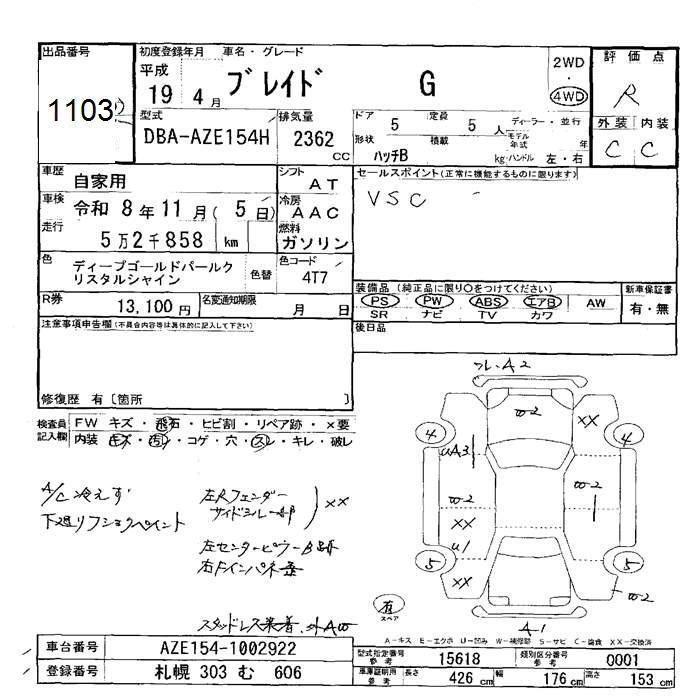 出品番号
1103
初度登録年月 車名・グレード
平成
19 4 月 ブレイド G
2WD
・
4WD
評価点
R
外装 内装
C C
型式
DBA-AZE154H
排気量
2362 CC
ドア 5 定員 5 人 ディーラー・並行
形状 ハッチB 積載 kg モデル年式 年
ハンドル 左・右
車歴 自家用
シフト AT
車検 令和 8年 11月( 5日)
冷房 AAC
走行 5万2千858 km
燃料 ガソリン
色 ディープゴールドパールク
リスタルシャイン
色替
色コード 4T7
R券 13,100円
名変通知期限 月 日
セールスポイント(正常に機能するものに限ります)
VSC
装備品 (純正品に限り○をつけてください)
PS PW ABS エアB AW
SR ナビ TV カワ
新車保証書
有・無
後日品
注意事項申告欄(不具合内容等は具体的に記入して下さい)
修復歴 有〔箇所 〕
検査員記入欄
FW キズ・飛石・ヒビ割・リペア跡・×要
内装 キズ・汚れ・コゲ・穴・スレ・キレ・破レ
A/C冷えず
左Rフェンダー
××
左センターピラー
フレ、A2
ω-2
××
4
4
uA3
ω-2
ω-2
××
u1
5
5
××
ω-2
有
スペア
A-1
スタッドレス装着
A-キズ E-エクボ U-凹み W-補修跡 S-サビ C-腐食 XX-交換済
車台番号 AZE154-1002922
登録番号 札幌 303 む 606
型式指定番号 参考 15618
類別区分番号 参考 0001
車庫証明用 参考 長さ 426 cm 幅 176 cm 高さ 153 cm